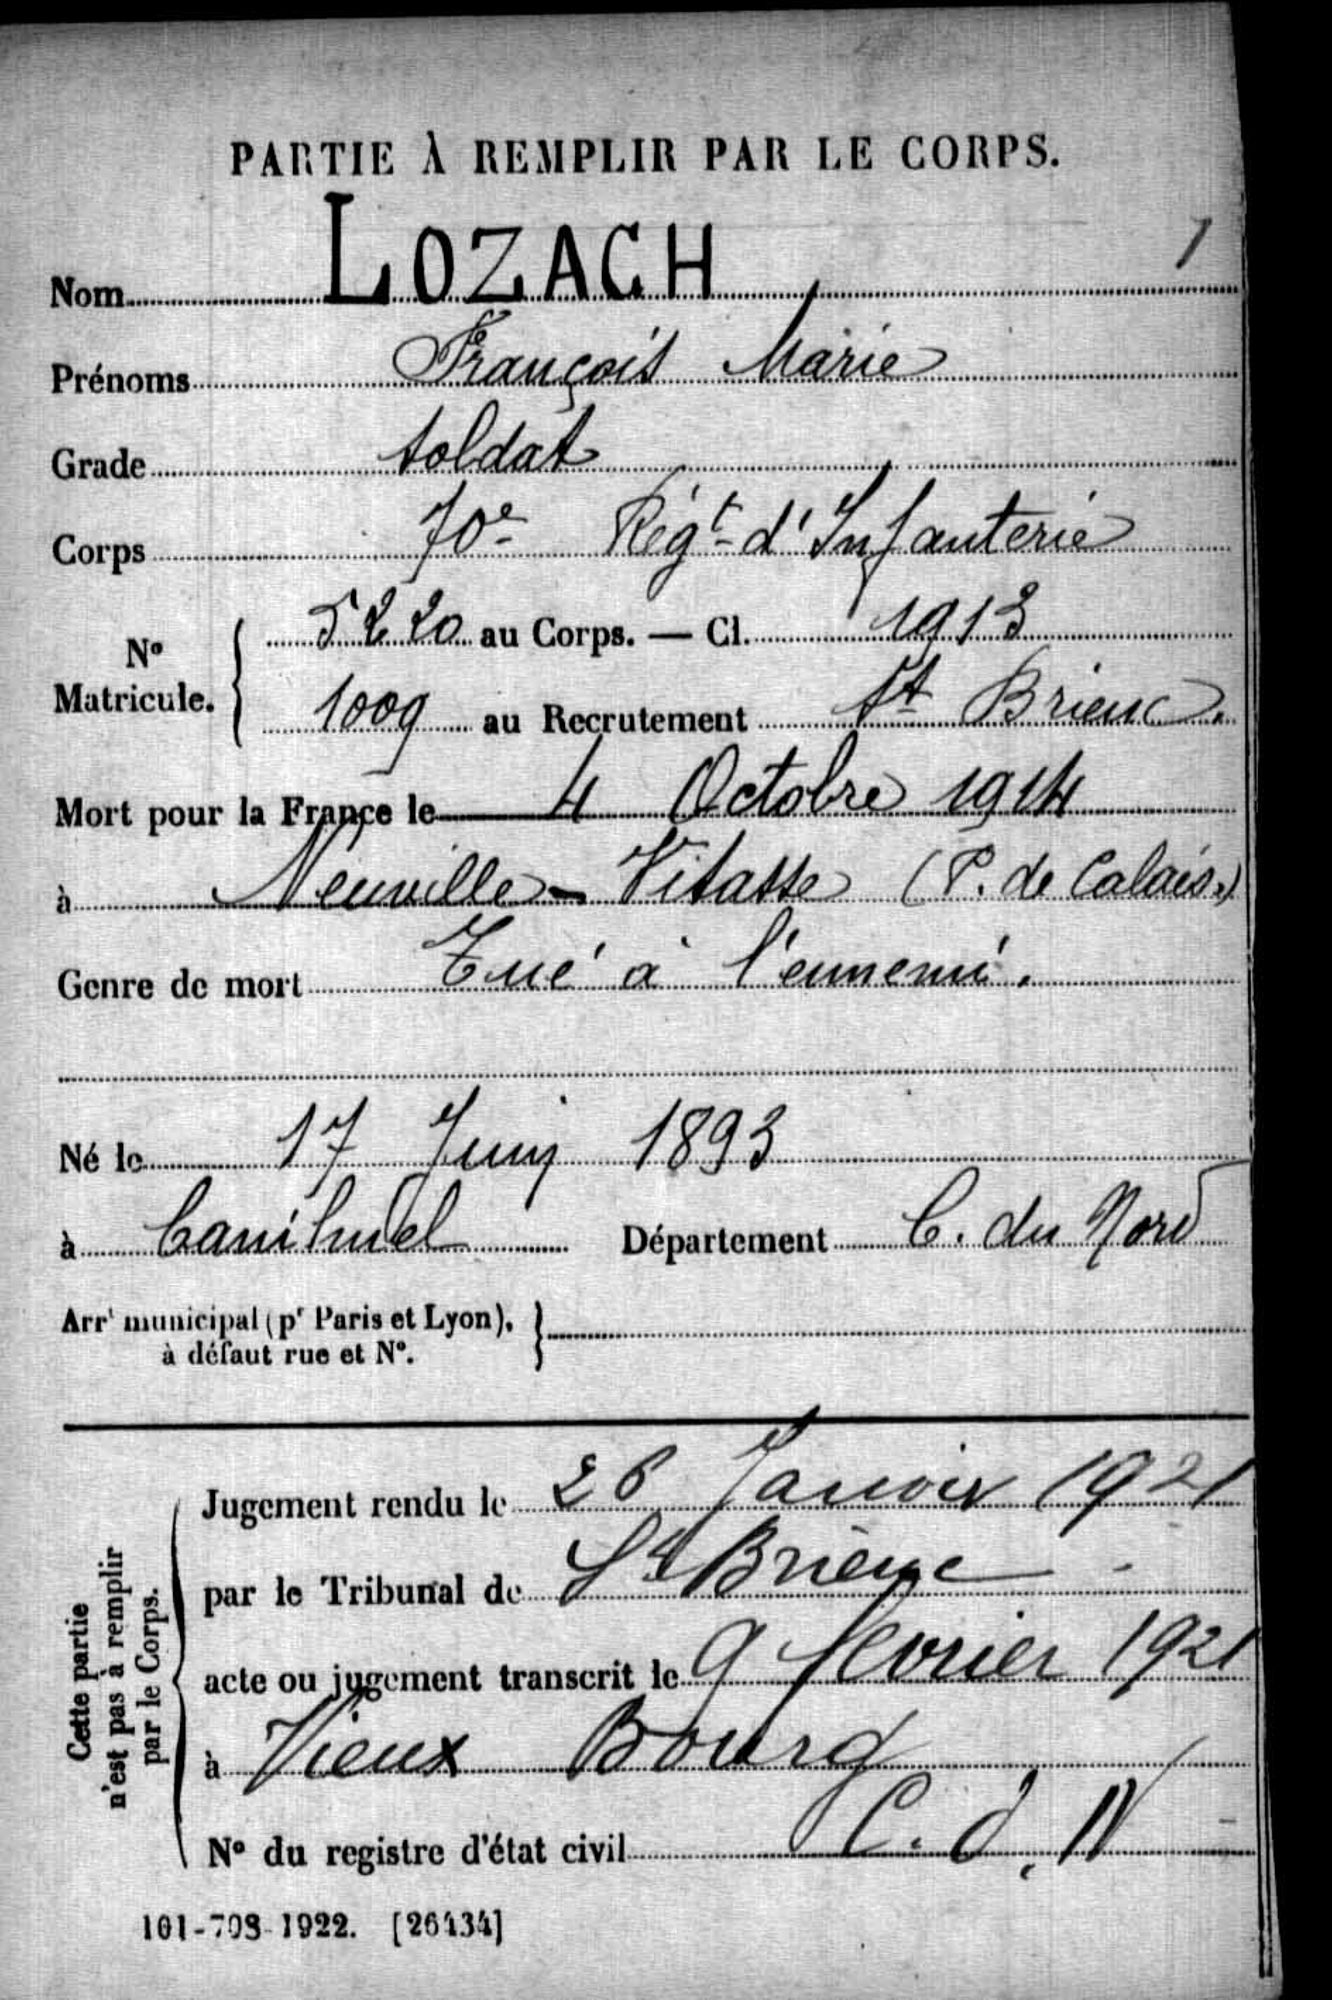 PARTIE À REMPLIR PAR LE CORPS.
1
Nom LOZACH
Prénoms François Marie
Grade Soldat
Corps 70e Régt d'Infanterie
No Matricule. { 5220 au Corps. — Cl. 1913
1009 au Recrutement St Brieuc.
Mort pour la France le 4 Octobre 1914
à Neuville-Vitasse (P. de Calais.)
Genre de mort Tué à l'ennemi.
Né le 17 Juin 1893
à Canihuel Département C. du Nord
Arrt municipal (pr Paris et Lyon), }
à défaut rue et No.
Cette partie
n'est pas à remplir
par le Corps.
Jugement rendu le 26 Janvier 1921
par le Tribunal de St Brieuc
acte ou jugement transcrit le 9 février 1921
à Vieux Bourg
No du registre d'état civil C. d. N
101-708-1922. [26434]